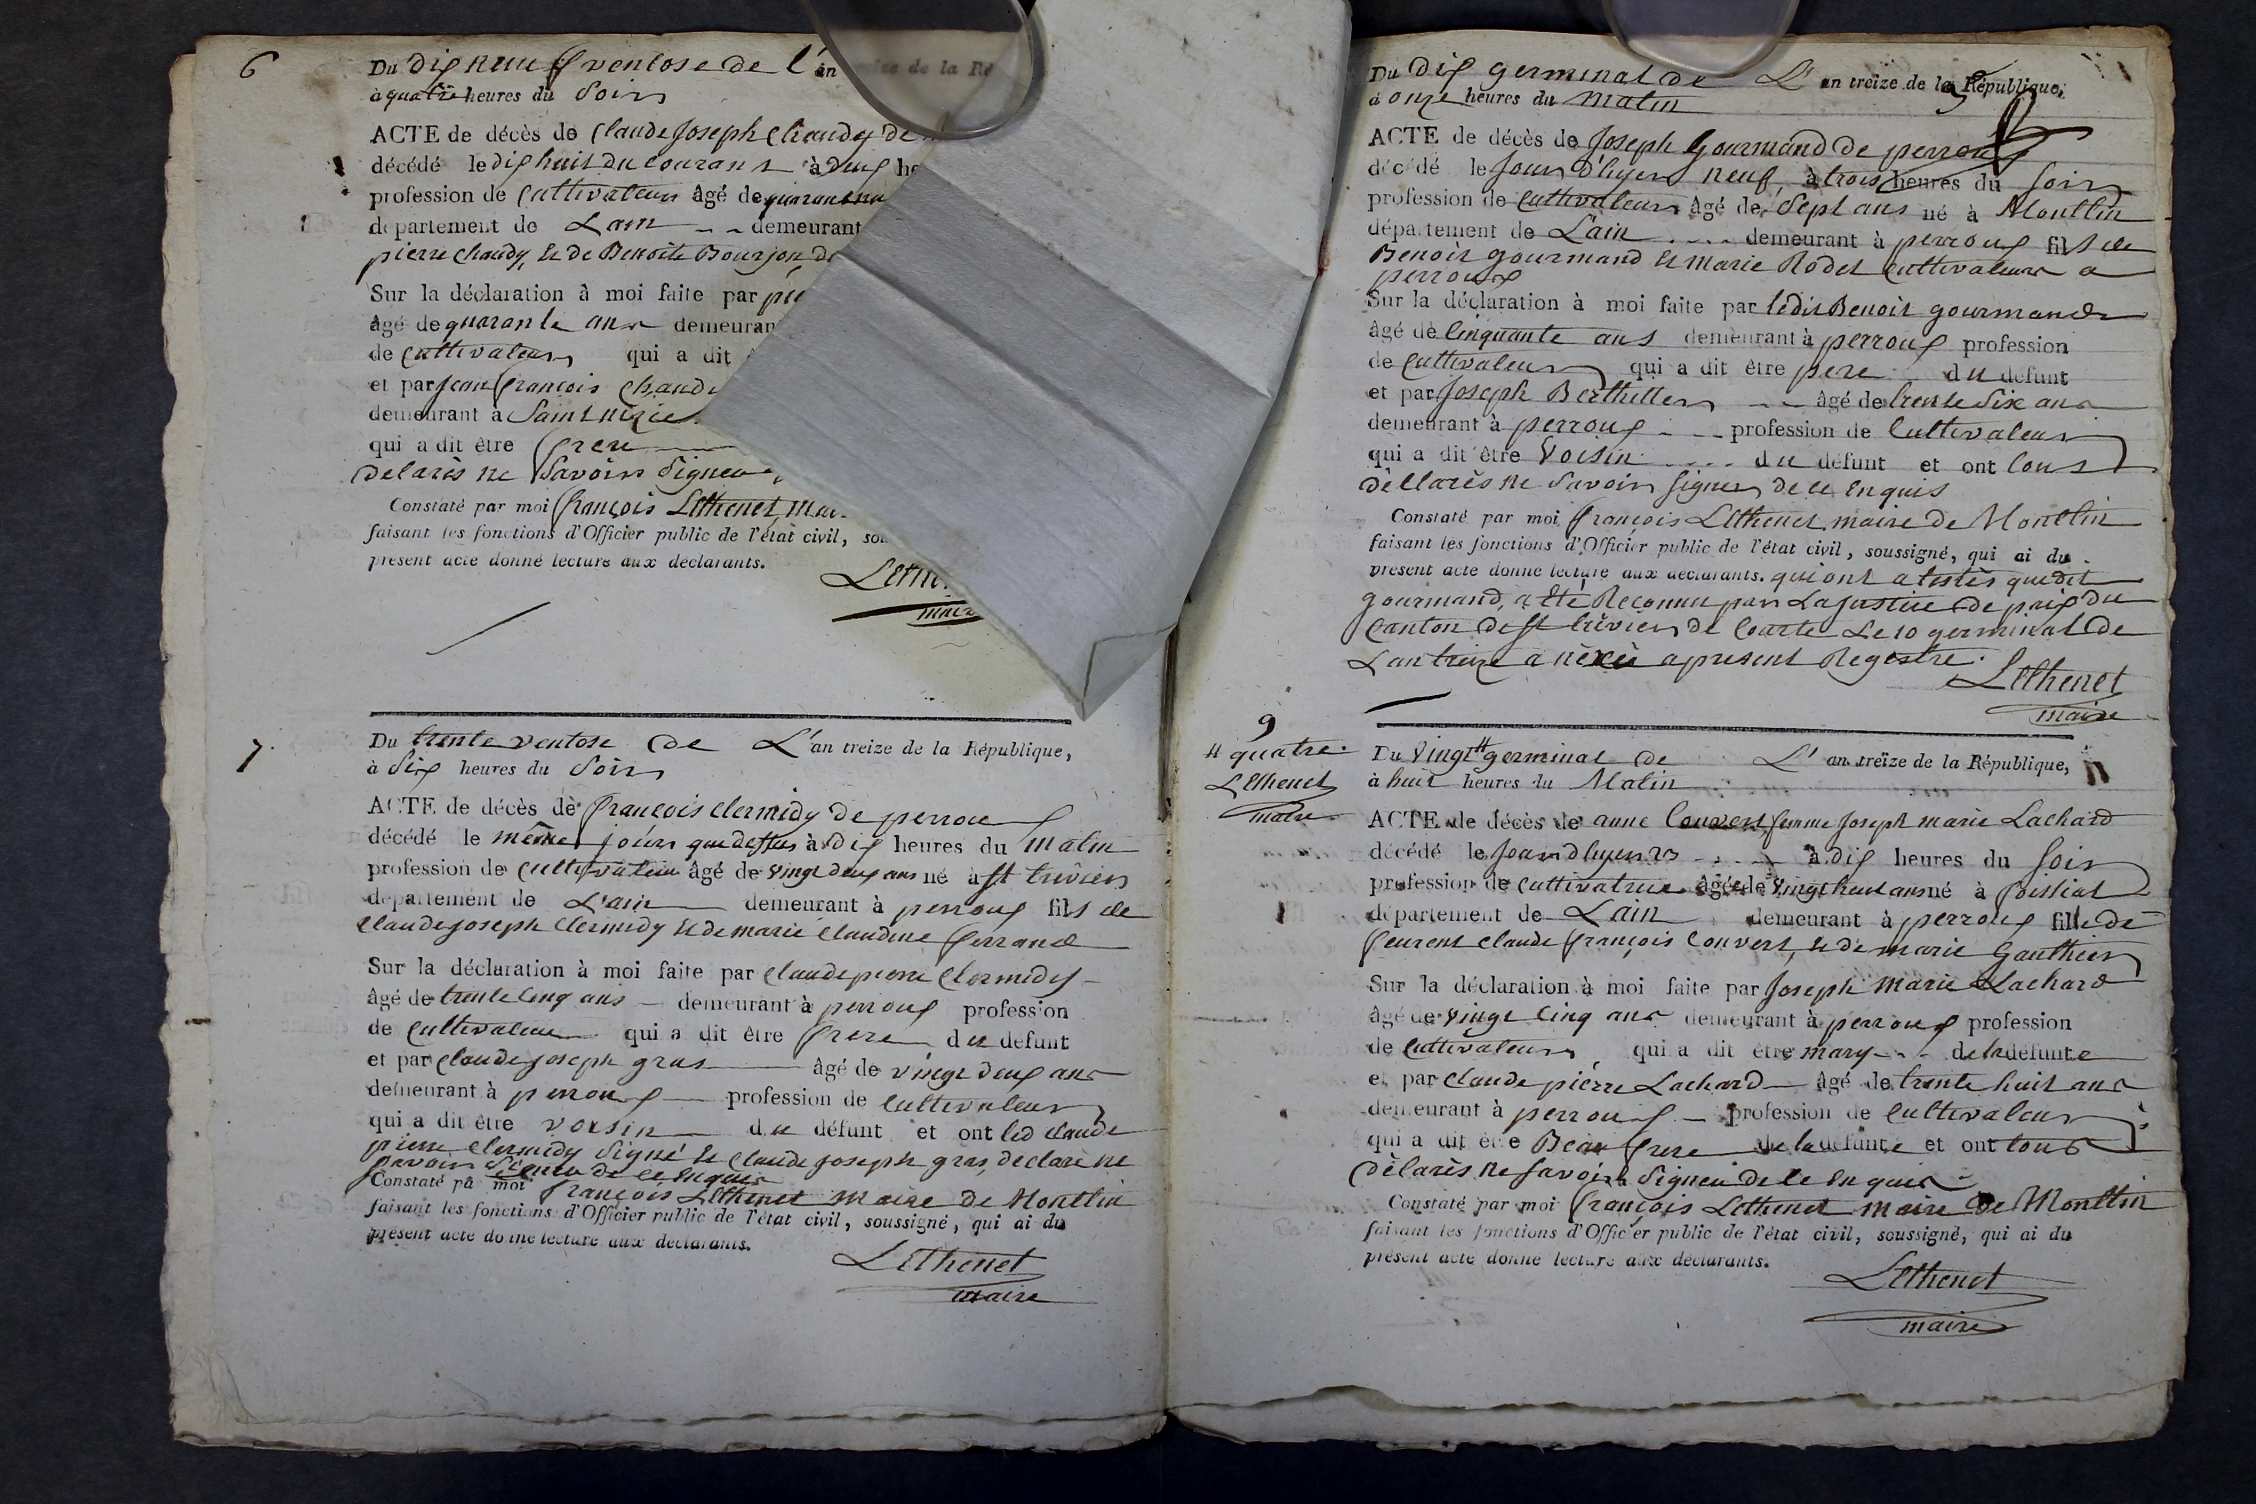 6
Du dix neuf ventose de l'an
à quatre heures du Soir
ACTE de décès de Claude Joseph Chaudy de
décédé le dix huit du courant à deux he
profession de Cultivateur âgé de quarante
département de Lain demeurant
pierre Chaudy, et de Benoite Bourjon de
Sur la déclaration à moi faite par pie
âgé de quarante ans demeuran
de Cultivateur qui a dit
et par Jean François Chaud
demeurant à Saint nizie
qui a dit être frere
delarès ne Savoir Signeu
Constaté par moi François Lethenet, Mai
faisant les fonctions d'Officier public de l'état civil, so
présent acte donné lecture aux déclarants.
Leth
maire
7
Du trente ventose de L'an treize de la République,
à Six heures du Soir
ACTE de décès de François Clermidy de perroux
décédé le même jour que dessus à dix heures du matin
profession de Cultivateur âgé de vingt deux ans né à St trivier
département de L'ain demeurant à perroux fils de
Claude joseph Clermidy et de marie Claudine ferrand
Sur la déclaration à moi faite par Claude pierre Clermidy
âgé de trente Cinq ans demeurant à perroux profession
de Cultivateur qui a dit être frere du défunt
et par Claude joseph gras âgé de vingt deux ans
demeurant à perroux profession de Cultivateur
qui a dit être voisin du défunt et ont led Claude
pierre Clermidy Signé et Claude joseph gras declare ne
savoir Signeu de ce Enquis
Constaté pa moi François Lethenet maire de Montlin
faisant les fonctions d'Officier public de l'état civil, soussigné, qui ai du
présent acte donné lecture aux déclarants.
Lethenet
maire
Du dix germinal de L'an treize de la République,
à onze heures du Matin
ACTE de décès de Joseph Gourmand de perroux
décédé le Jour d'hyer neuf, à trois heures du Soir
profession de Cultivateur âgé de Sept ans né à Montlin
département de L'ain demeurant à perroux fils de
Benoit gourmand et Marie Rodet Cultivateurs a
perroux
Sur la déclaration à moi faite par ledit Benoit gourmand
âgé de Cinquante ans demeurant à perroux profession
de Cultivateur qui a dit être pere du défunt
et par Joseph Berthillier âgé de trente Six ans
demeurant à perroux profession de Cultivateur
qui a dit être Voisin du défunt et ont tous
dèllarès ne Savoir Signer de ce Enquis
Constaté par moi François Lethenet maire de Montlin
faisant les fonctions d'Officier public de l'état civil, soussigné, qui ai du
présent acte donné lecture aux déclarants. qui ont atestès que dit
gourmand, a Eté Reconnu par La justice de paix du
Canton de St trivier de Courte Le 10 germinal de
L'an treize anèxèe a present Registre.
Lethenet
maire
9
4 quatre
Lethenet
maire
Du Vingt 4 germinal de L'an treize de la République,
à huit heures du Matin
ACTE de décès de anne Convert, femme Joseph marie Lachard
décédé le Jour d'hyer 23 à dix heures du Soir
profession de Cultivatrice âgée de Vingt huit ans né à foissiat
département de Lain demeurant à perroux fille de
feurent Claude françois Convert, et de marie Gauthier
Sur la déclaration à moi faite par Joseph Marie Lachard
âgé de vingt Cinq ans demeurant à perroux profession
de Cultivateur qui a dit être mary de la défunte
et par Claude pierre Lachard âgé de trente huit ans
demeurant à perroux profession de Cultivateur
qui a dit être Beau frere de la défunte et ont tous
dèlarès ne Savoir Signeu de ce Enquis
Constaté par moi François Lethenet maire de Montlin
faisant les fonctions d'Officier public de l'état civil, soussigné, qui ai du
présent acte donné lecture aux déclarants.
Lethenet
maire